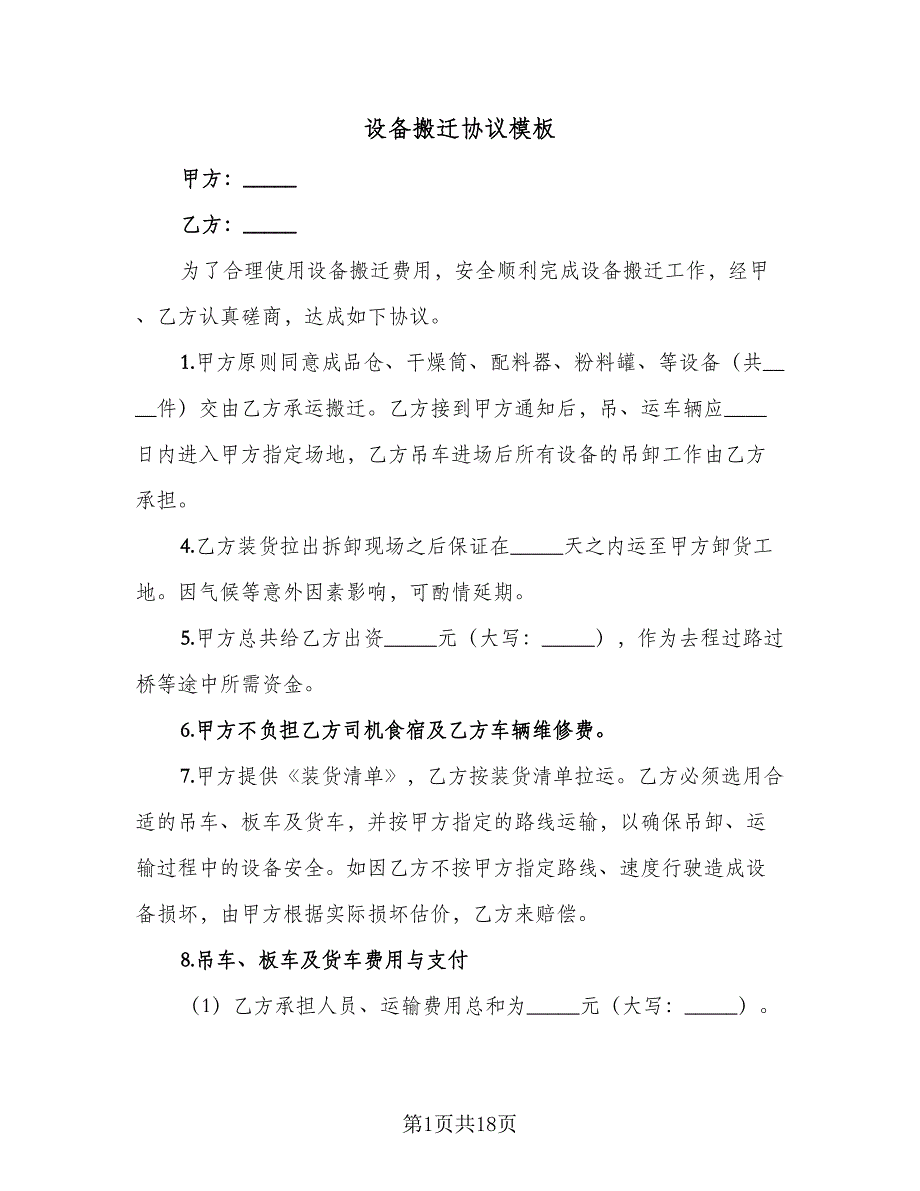 设备搬迁协议模板
甲方：_____
乙方：_____
为了合理使用设备搬迁费用，安全顺利完成设备搬迁工作，经甲
、乙方认真磋商，达成如下协议。
1.甲方原则同意成品仓、干燥筒、配料器、粉料罐、等设备（共__
__件）交由乙方承运搬迁。乙方接到甲方通知后，吊、运车辆应____
日内进入甲方指定场地，乙方吊车进场后所有设备的吊卸工作由乙方
承担。
4.乙方装货拉出拆卸现场之后保证在_____天之内运至甲方卸货工
地。因气候等意外因素影响，可酌情延期。
5.甲方总共给乙方出资_____元（大写：_____），作为去程过路过
桥等途中所需资金。
6.甲方不负担乙方司机食宿及乙方车辆维修费。
7.甲方提供《装货清单》，乙方按装货清单拉运。乙方必须选用合
适的吊车、板车及货车，并按甲方指定的路线运输，以确保吊卸、运
输过程中的设备安全。如因乙方不按甲方指定路线、速度行驶造成设
备损坏，由甲方根据实际损坏估价，乙方来赔偿。
8.吊车、板车及货车费用与支付
（1）乙方承担人员、运输费用总和为_____元（大写：_____）。
第1页共18页